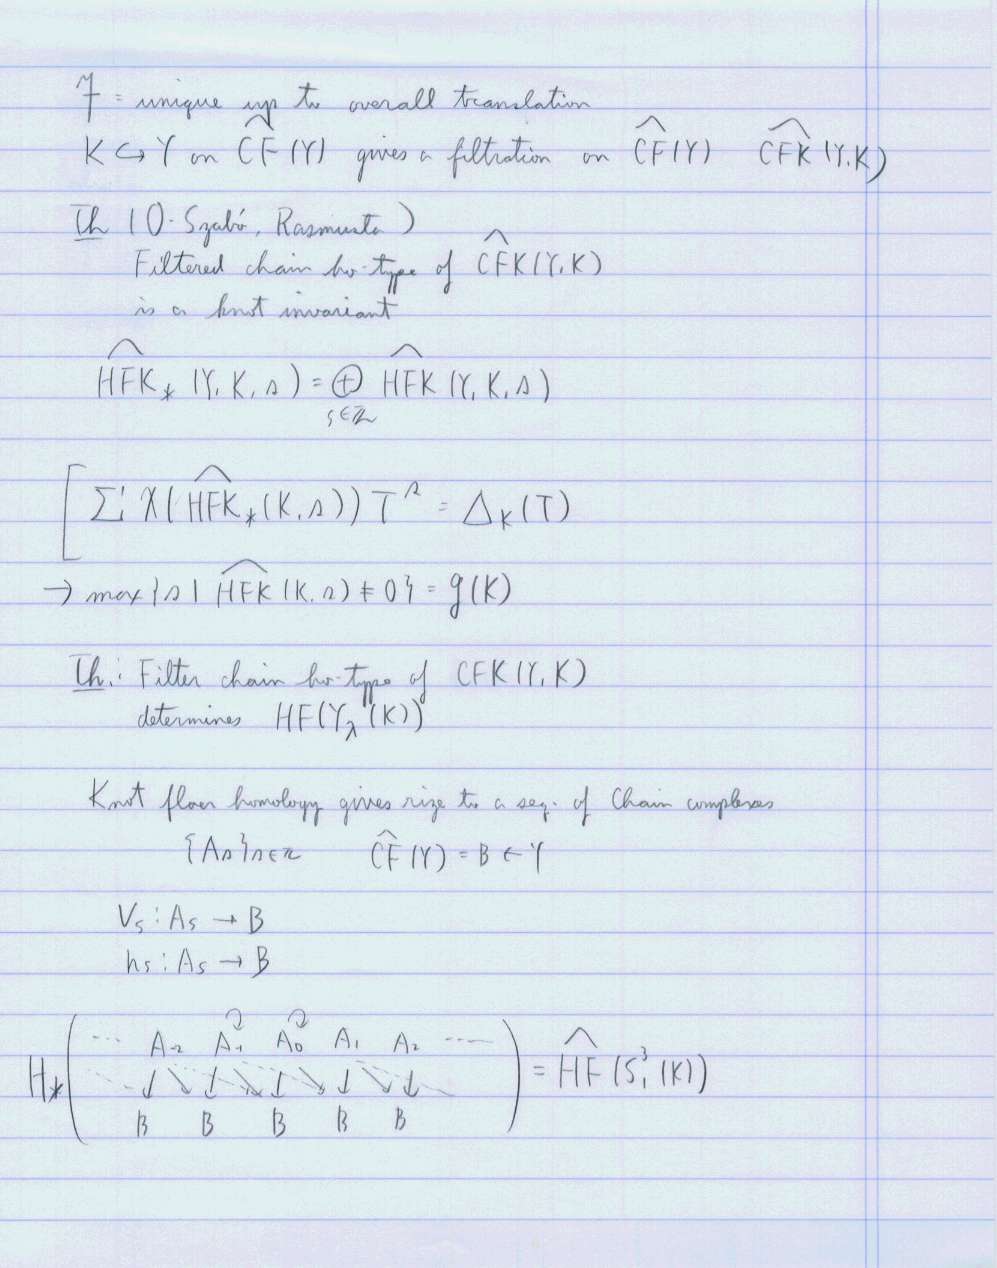 F = unique up to overall translation
K ↪ Y on ĈF(Y) gives a filtration on ĈF(Y) ĈFK(Y,K)
Th (O-Szabó, Rasmusta)
Filtered chain ho-type of ĈFK(Y,K)
is a knot invariant
ĤFK_*(Y, K, s) = ⊕_{s∈ℤ} ĤFK(Y, K, s)
[ Σ χ(ĤFK_*(K,s)) T^s = Δ_K(T)
→ max{s | ĤFK(K,s) ≠ 0} = g(K)
Th: Filter chain ho-type of CFK(Y,K)
determines HF(Y_λ(K))
Knot floer homology gives rize to a seq. of Chain complexes
{A_s}_{s∈ℤ} ĈF(Y) = B ← Y
V_s : A_s → B
h_s : A_s → B
H_* ( ... A_-2 A_-1 A_0 A_1 A_2 ... ) = ĤF(S^3_1(K))
B B B B B